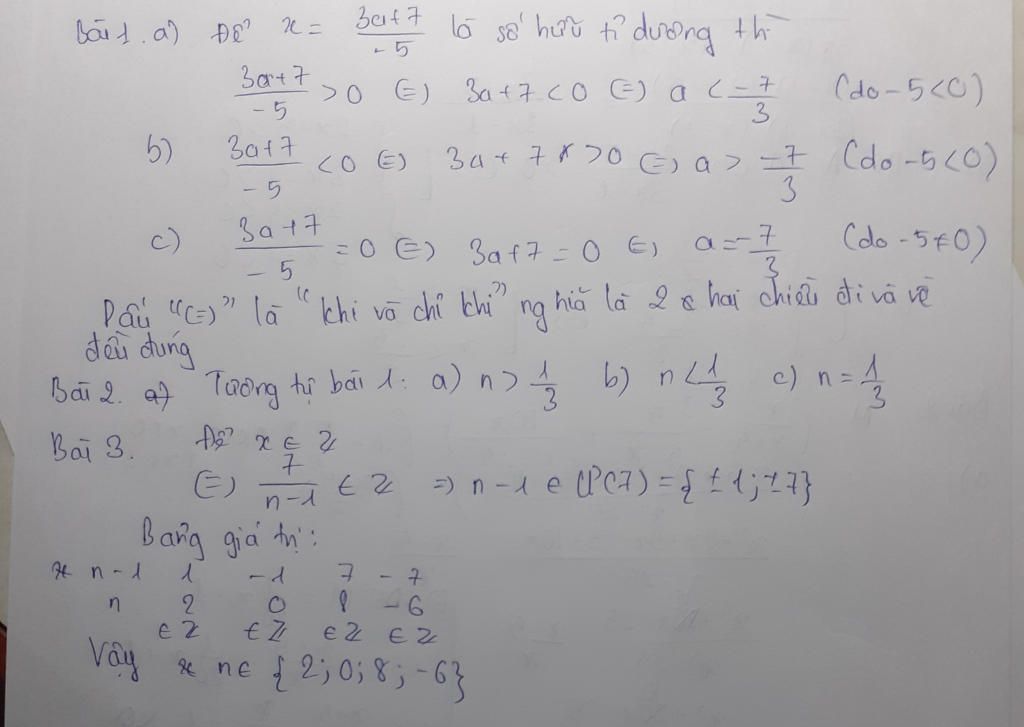 Bài 1. a) Để x = \frac{3a+7}{-5} là số hữu tỉ dương thì
\frac{3a+7}{-5} > 0 (=) 3a+7 < 0 (=) a < \frac{-7}{3} (do -5<0)
b) \frac{3a+7}{-5} < 0 (=) 3a + 7 > 0 (=) a > \frac{-7}{3} (do -5<0)
c) \frac{3a+7}{-5} = 0 (=) 3a+7 = 0 (=) a = \frac{-7}{3} (do -5≠0)
Dấu "(=)" là "khi và chỉ khi" nghĩa là 2 hai chiều đi và về
đều đúng
Bài 2. a) Tương tự bài 1: a) n > \frac{1}{3} b) n < \frac{1}{3} c) n = \frac{1}{3}
Bài 3. Để x ∈ Z
(=) \frac{7}{n-1} ∈ Z => n-1 ∈ Ư(7) = {±1; ±7}
Bảng giá trị:
n-1 1 -1 7 -7
n 2 0 8 -6
∈Z ∈Z ∈Z ∈Z
Vậy n∈ {2; 0; 8; -6}